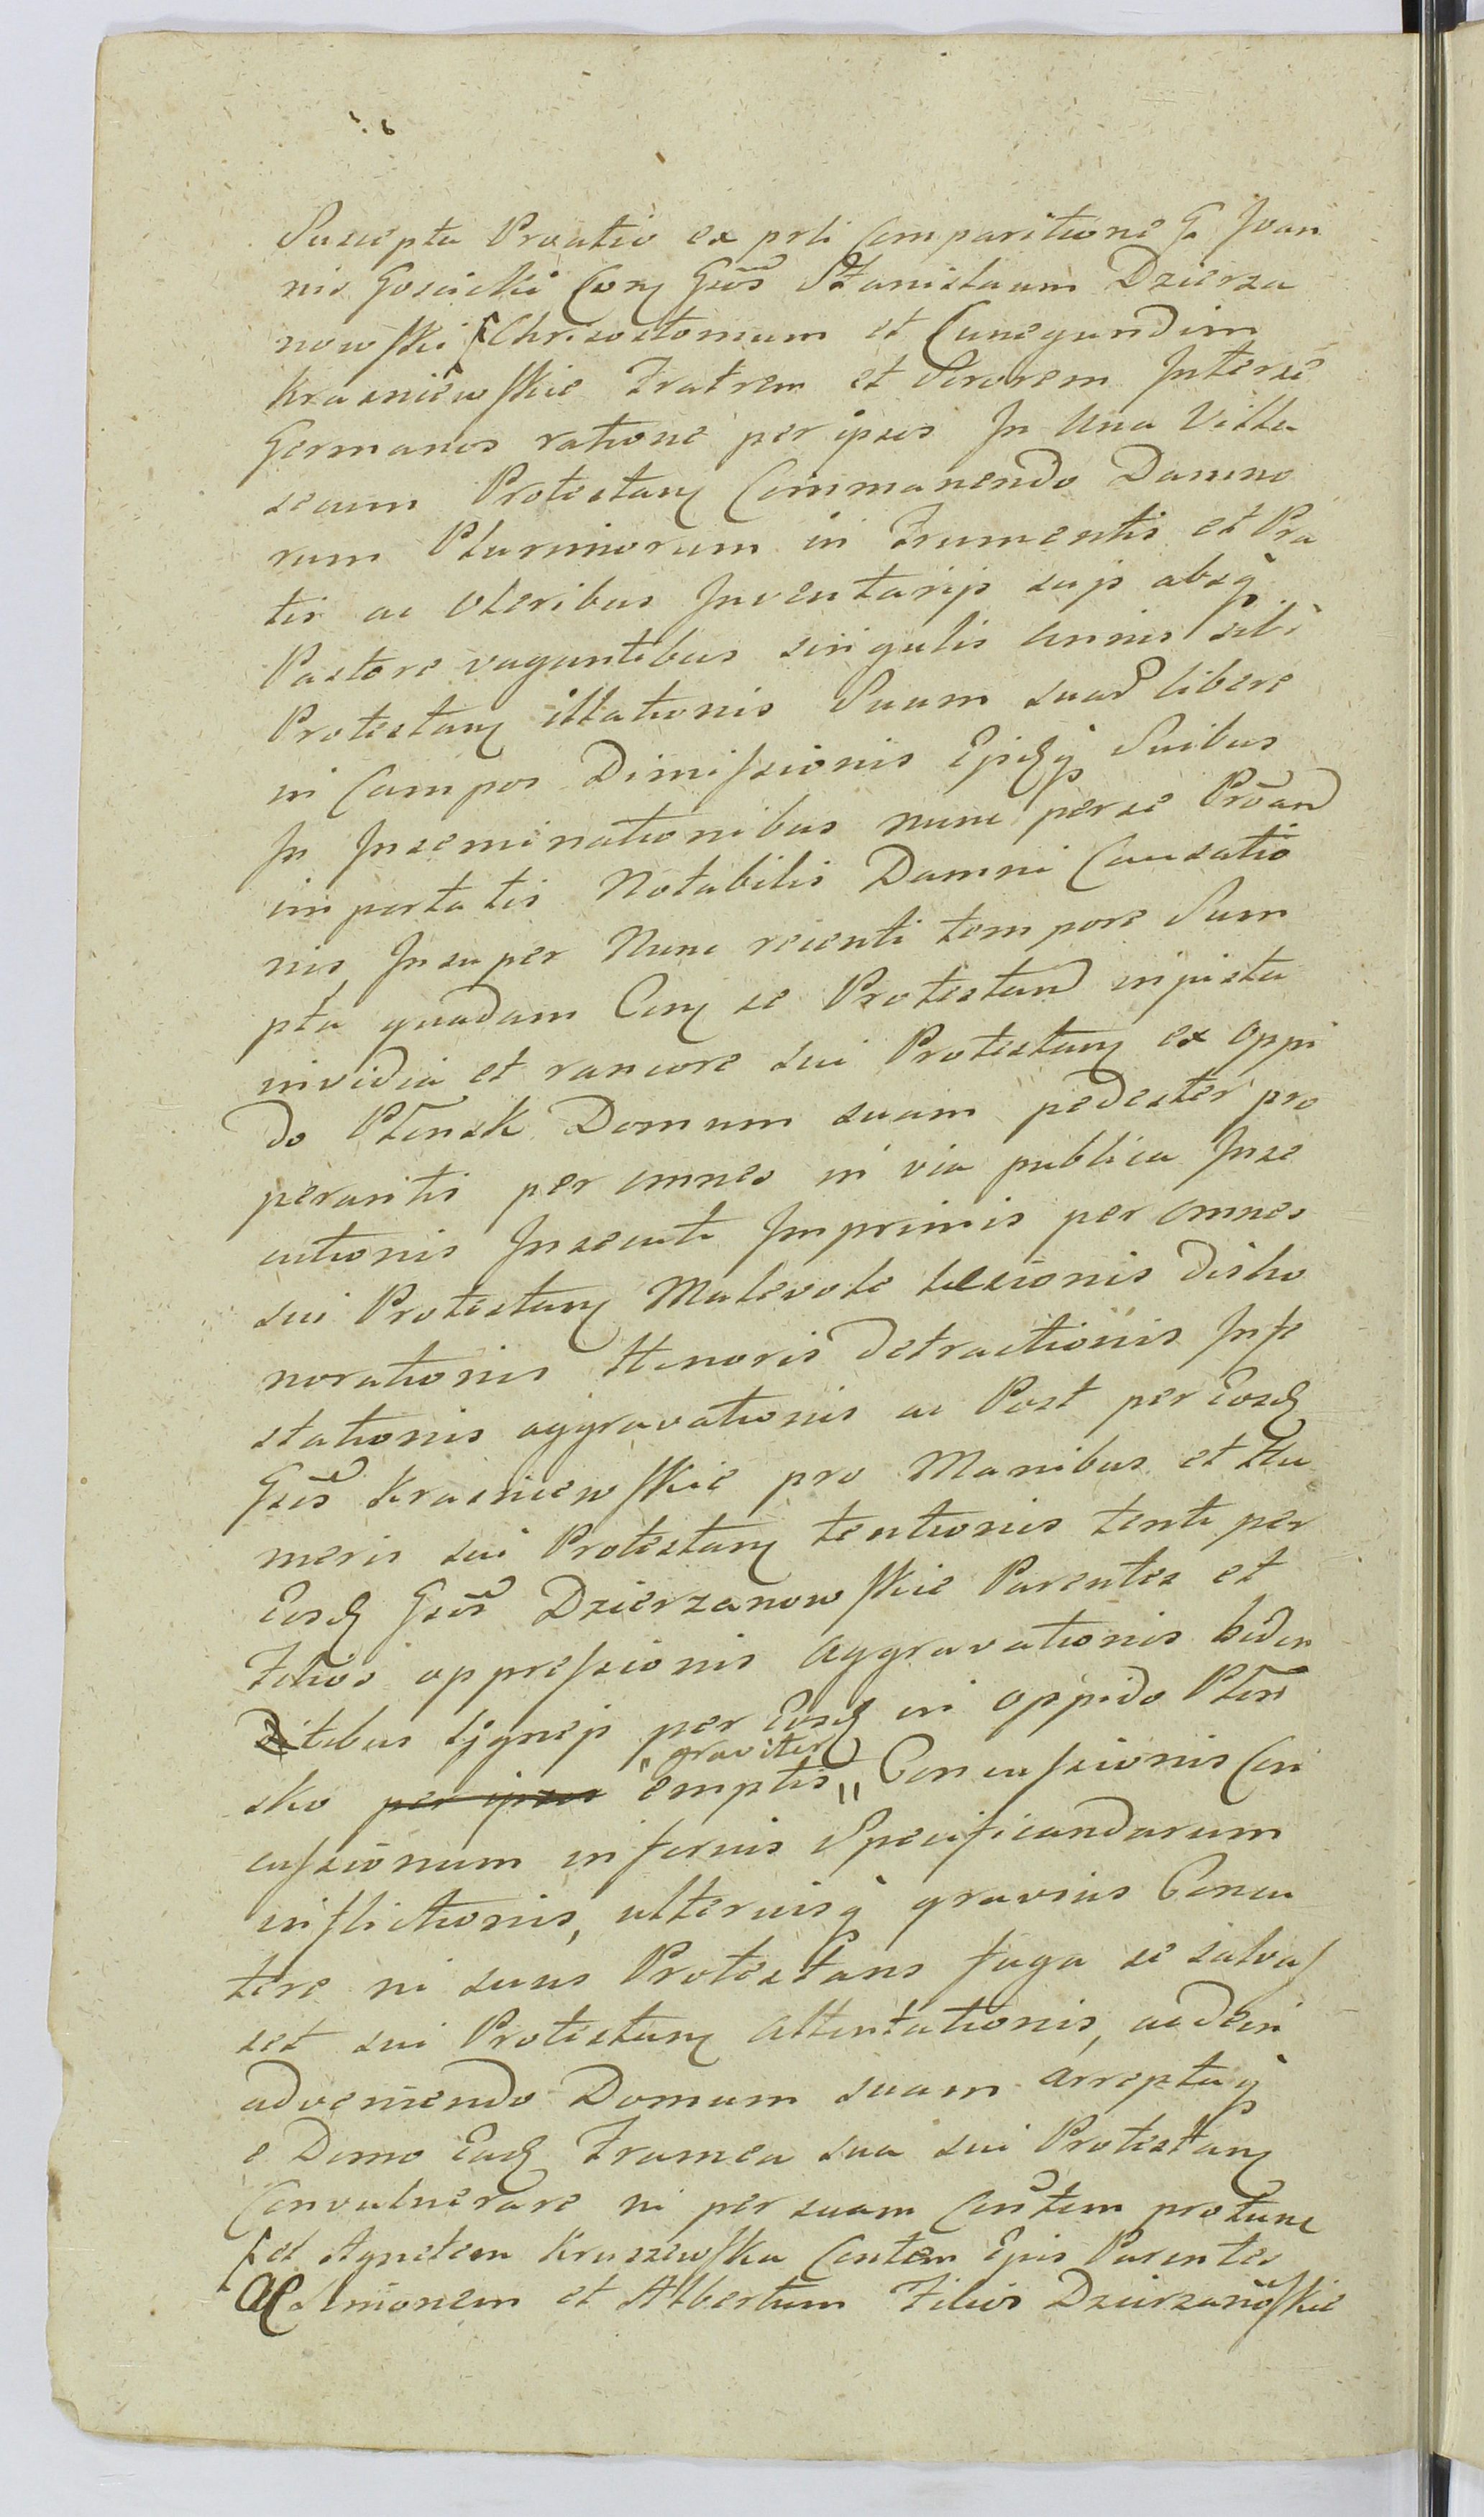 Suscepta Protatio ex prti Comparitione G Joan
nis Goscicki Con Gsos Stanislaum Dzierza
nowski Chrisostomum et Cunegundim
Krasniewskie Fratrem et Sororem Interse
Germanos ratione per ipsos In Una Villa
secum Protestan Commanendo Damno
rum Plurimorum in Frumentis et Pra
tis ac Oleribus Inventarijs suis absq
Pastore vagantibus singulis Annis sibi
Protestan illationis Suum suar libere
in Campos Dimissionis Ejsdq Suibus
In Inseminationibus nunc per se Proan
impertatis Notabilis Damni Causatio
nis Insuper Nunc recenti tempore Sum
pta quadam Con se Protestan injusta
invidia et rancore sui Protestan ex Oppi
do Plensk Domum suam pedester pro
perantis per omnes in via publica Inse
cutionis Insecuti Imprimis per omnes
sui Protestan Malevole lesionis disho
norationis Honoris Detractionis Infe
stationis aggravationis ac Post per Eosd
Gsos Krasniewskie pro Manibus et Hu
meris sui Protestan tentionis tenti per
Eosd Gsos Dzierzanowskie Parentes et
Filios oppressionis Aggravationis biden
tibus ligneis per Eosd in oppido Plen
sko per ipsos emptis " graviter " Concussionis Con
cussionum inferius Specificandarum
inflictionis, ulteriusq gravius Concu
tere ni suus Protestans fuga se salvas
set sui Protestan Attentationis, ac dein
adveniendo Domum suam arreptaq
e Domo Ead Framea sua sui Protestan
Convulnerare ni per suam Contem protunc
et Agnetem Kraszewska Contem Ejus Parentes
AC Simonem et Albertum Filios Dzierzanoskie